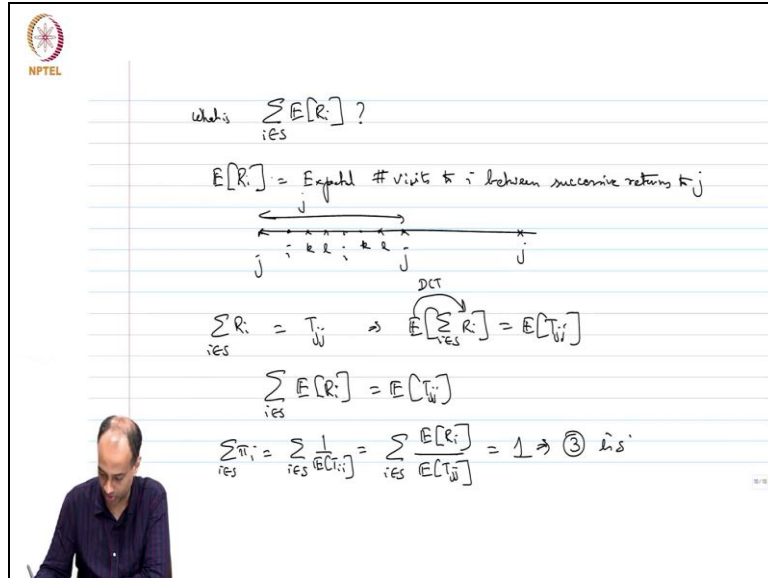 NPTEL
what is ∑_{i∈S} E[R_i] ?
E[R_i] = Expectd # visits to i between successive returns to j
j
j i k l i k l j j
DCT
∑_{i∈S} R_i = T_jj ⇒ E[∑_{i∈S} R_i] = E[T_jj]
∑_{i∈S} E[R_i] = E[T_jj]
∑_{i∈S} π_i = ∑_{i∈S} 1/E[T_ii] = ∑_{i∈S} E[R_i]/E[T_jj] = 1 ⇒ ③